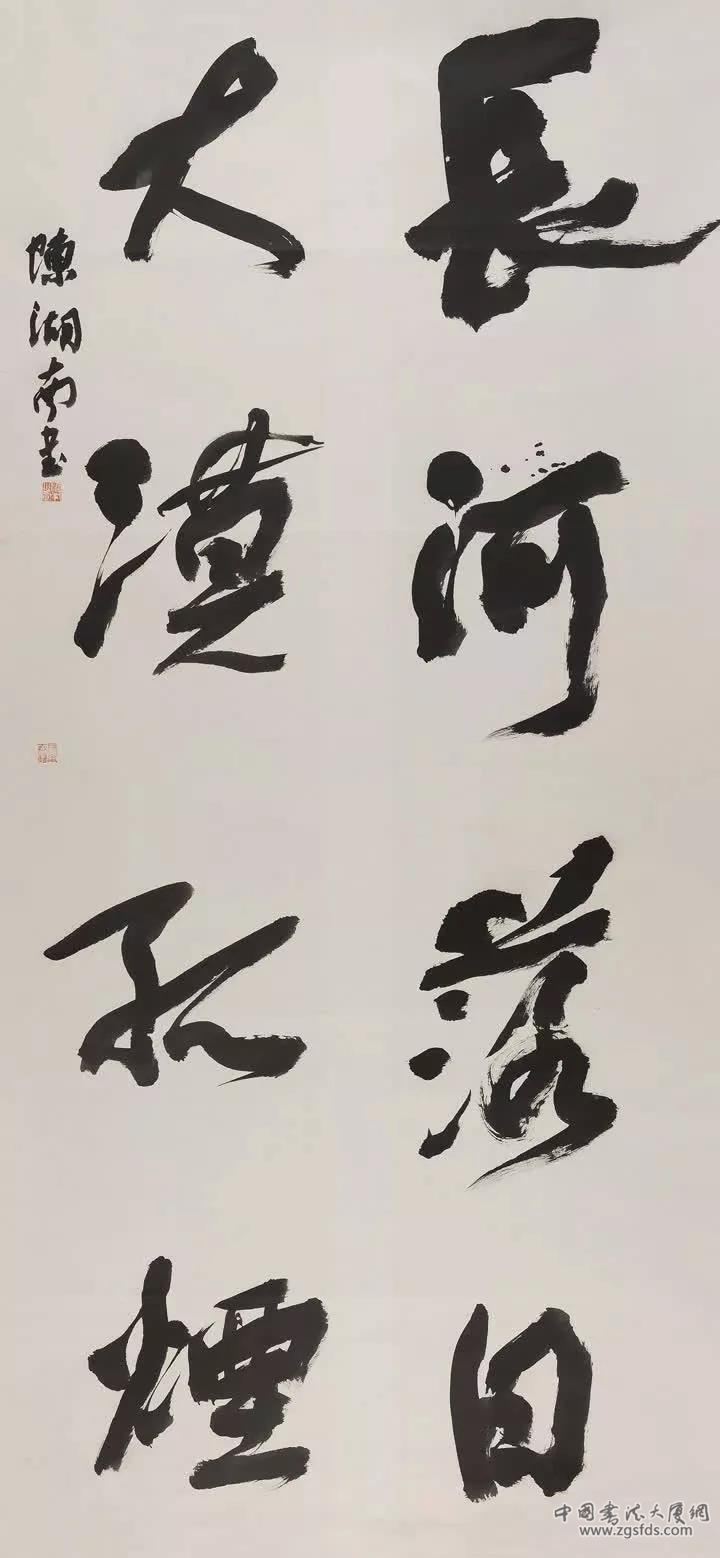 長河落日
大漠孤煙
陳湖南書
中国书法大厦網
www.zgsfds.com